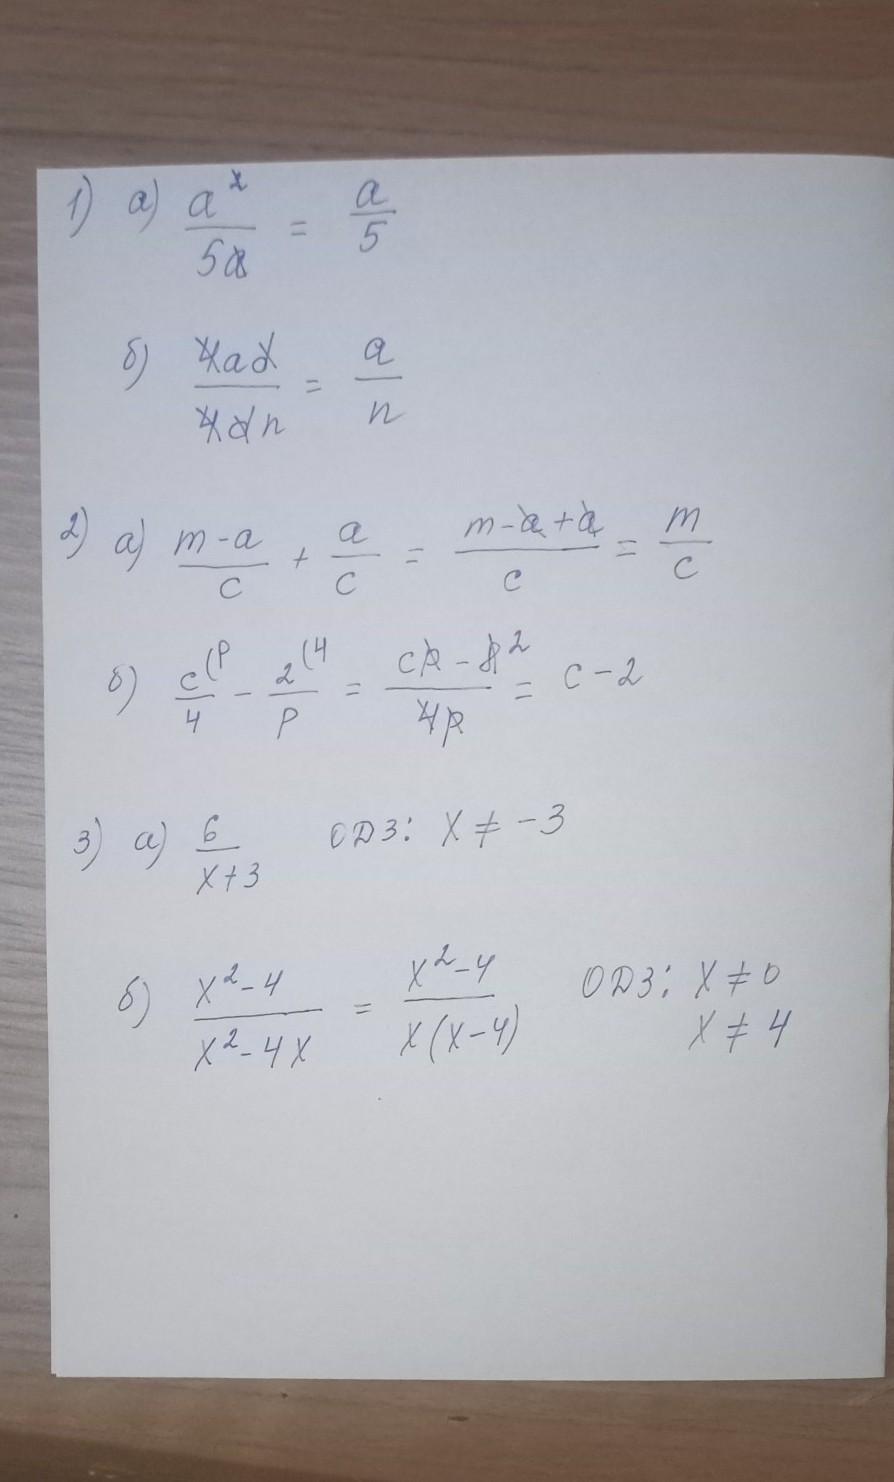 1) а) a²/5a = a/5
б) 4ad/4dn = a/n
2) а) (m-a)/c + a/c = (m-a+a)/c = m/c
б) c(p/4 - 2(4/p = (cp-8 2)/4p = c-2
3) а) 6/(x+3) ОДЗ: x ≠ -3
б) (x²-4)/(x²-4x) = (x²-4)/(x(x-4)) ОДЗ: x ≠ 0
x ≠ 4